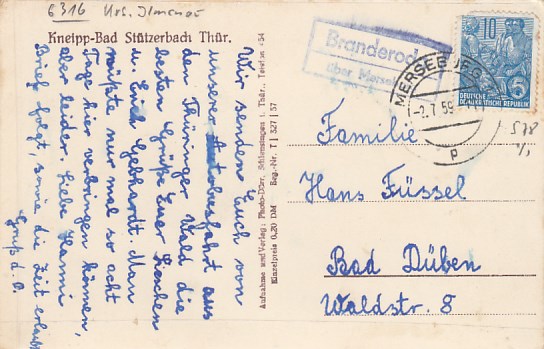 6316 Krs. Ilmenau
Kneipp-Bad Stützerbach Thür.
Wir senden Euch von
unserer Autobusfahrt aus
dem Thüringer Wald die
besten Grüße Euer Lieschen
u. Erich Gebhardt. Man
müßte nur mal so acht
Tage hier verbringen können,
aber leider. Liebe Hanni
Brief folgt, sowie die Zeit erlaubt
Gruß d. O.
Aufnahme und Verlag: Photo-Dörr, Schleusingen i. Thür., Telefon 454
Einzelpreis 0,20 DM Reg.-Nr. T | 527 | 57
Branderoda
über Merseburg
MERSEBURG
-2.7.59
p
10
6
DEUTSCHE
DEMOKRATISCHE REPUBLIK
578
Familie
Hans Füssel
Bad Düben
Waldstr. 8